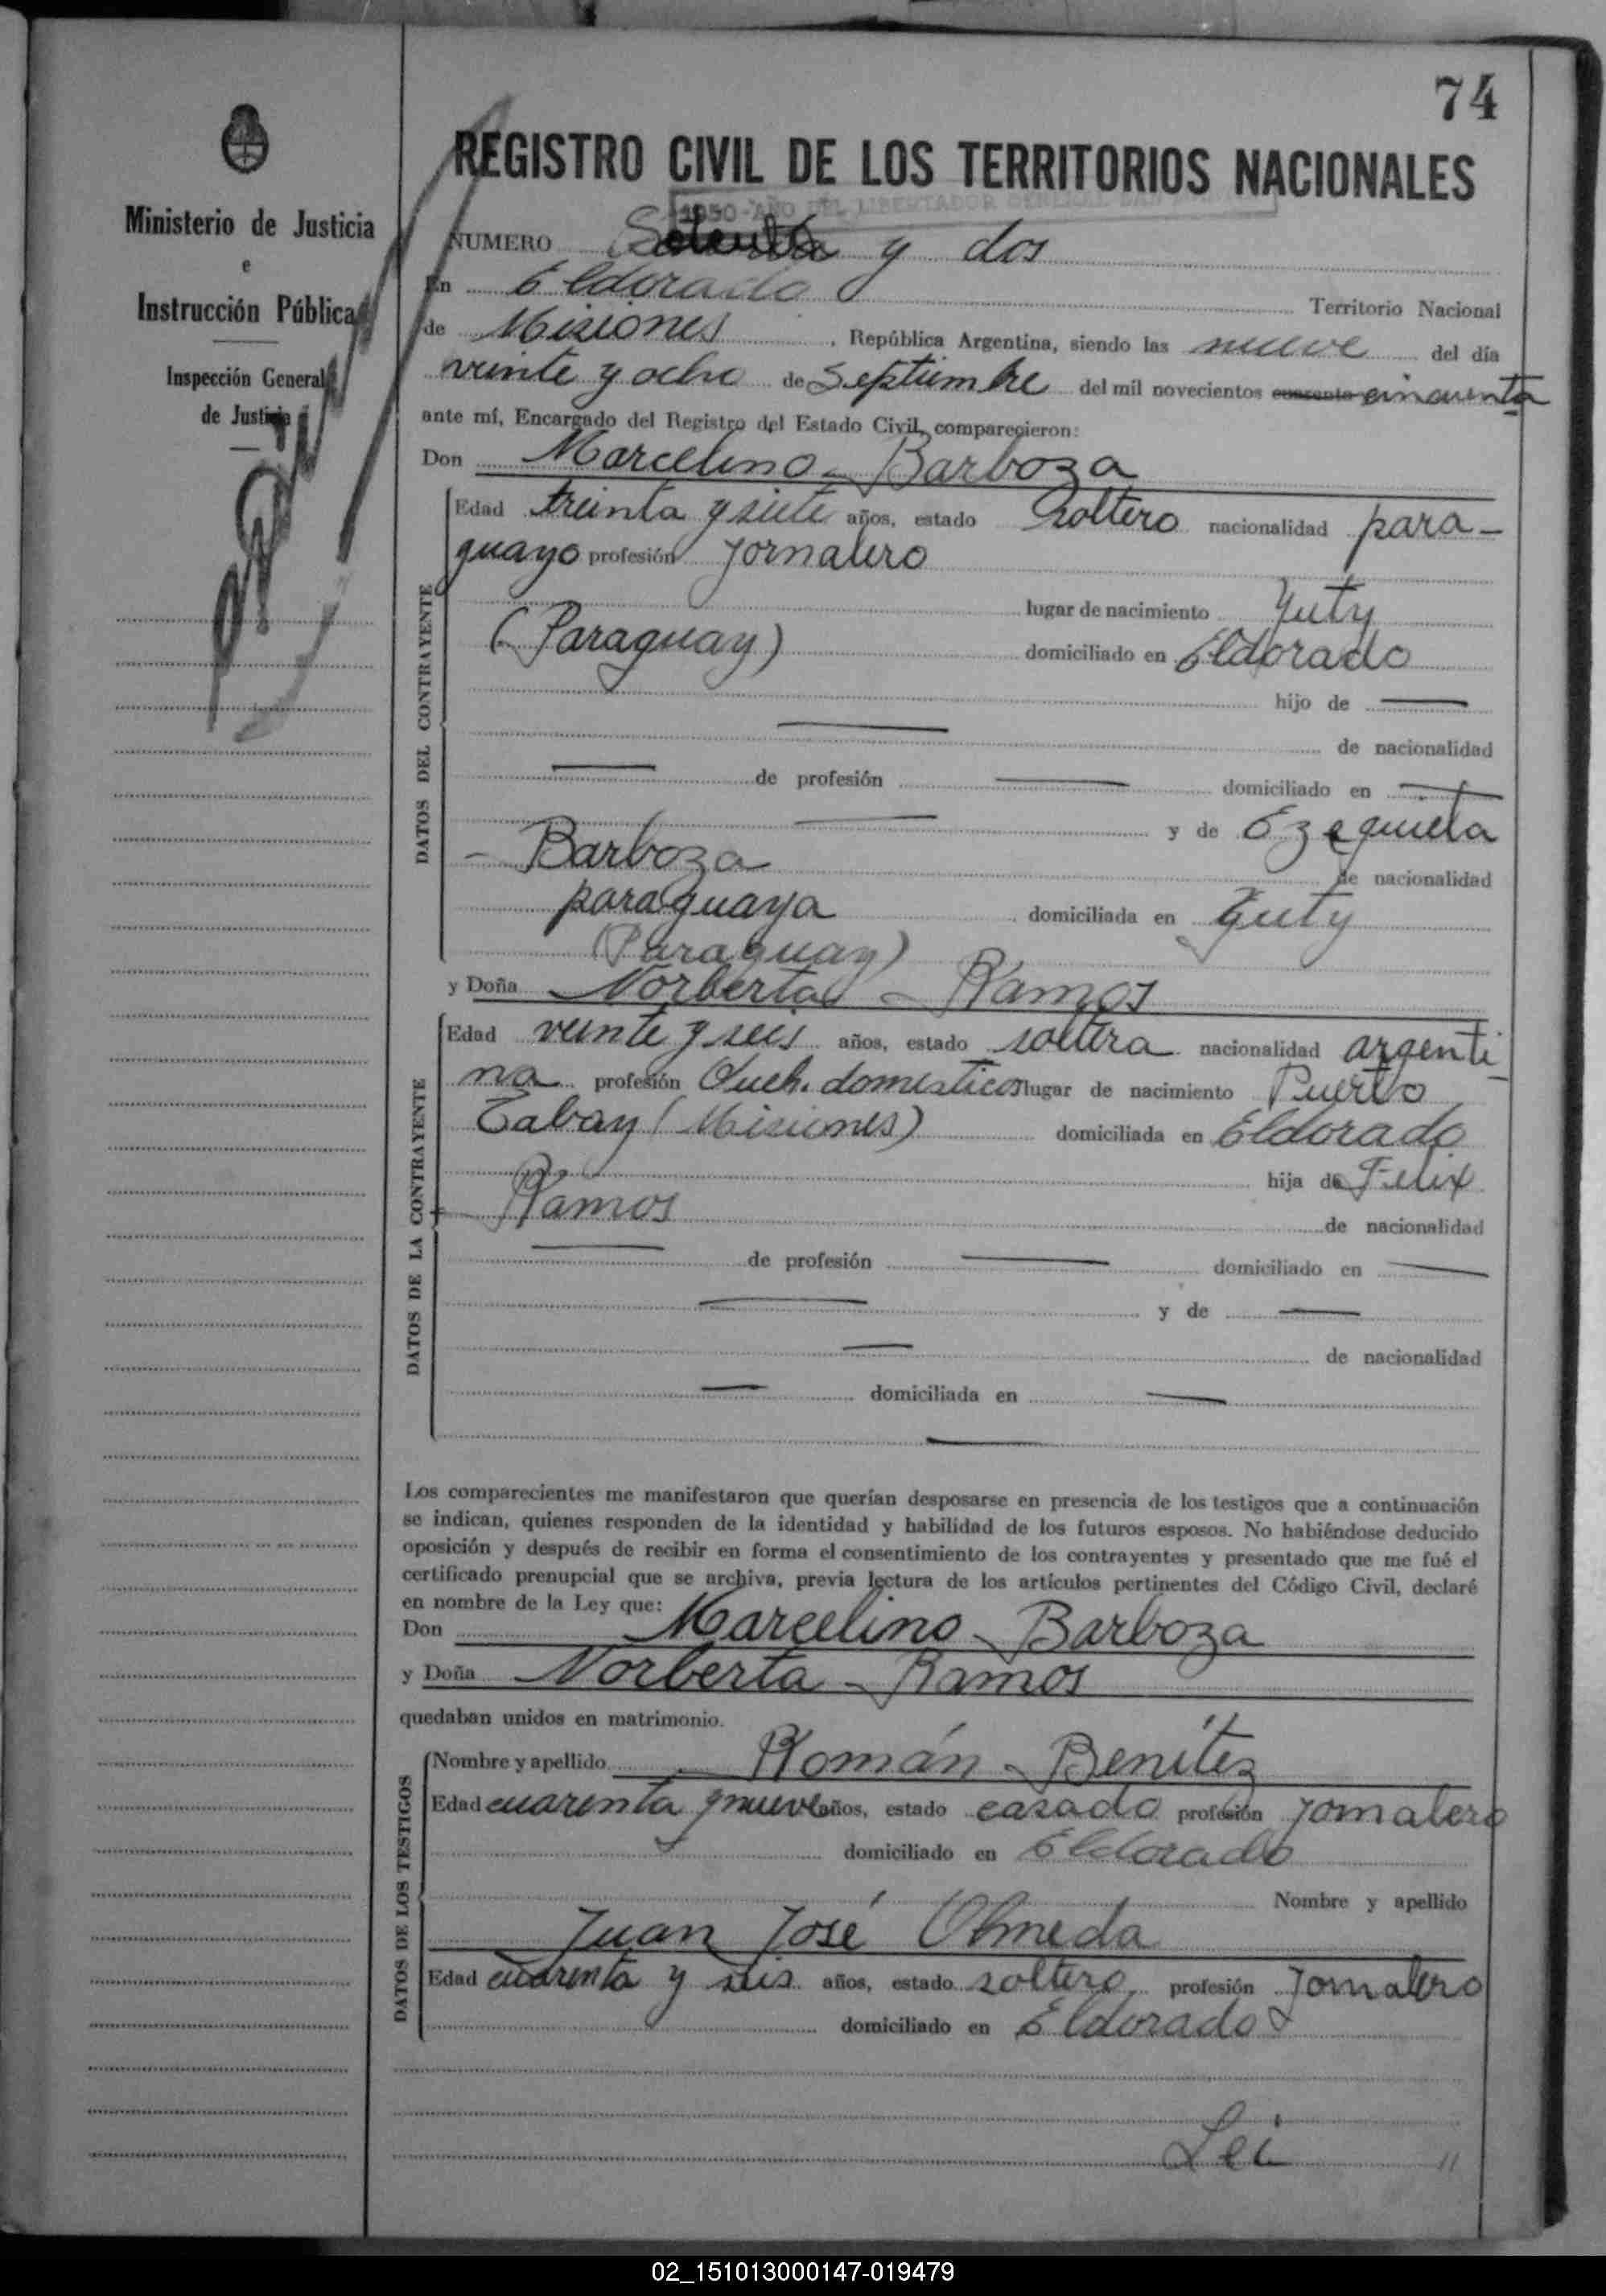 74
Ministerio de Justicia
e
Instrucción Pública
Inspección General
de Justicia
REGISTRO CIVIL DE LOS TERRITORIOS NACIONALES
1950 - AÑO DEL LIBERTADOR GENERAL SAN MARTIN
NUMERO Setenta y dos
En Eldorado Territorio Nacional
de Misiones, República Argentina, siendo las nueve del día
veinte y ocho de Septiembre del mil novecientos cincuenta
ante mí, Encargado del Registro del Estado Civil, comparecieron:
Don Marcelino - Barboza
DATOS DEL CONTRAYENTE
Edad treinta y siete años, estado Soltero nacionalidad para-
guayo profesión Jornalero
lugar de nacimiento Yuty
(Paraguay) domiciliado en Eldorado
hijo de —
— de nacionalidad
— de profesión — domiciliado en —
— y de Ezequiela
- Barboza de nacionalidad
paraguaya domiciliada en Yuty
(Paraguay)
y Doña Norberta - Ramos
DATOS DE LA CONTRAYENTE
Edad veinte y seis años, estado soltera nacionalidad argenti-
na profesión Queh. domesticos lugar de nacimiento Puerto
Tabay (Misiones) domiciliada en Eldorado
hija de Felix
Ramos de nacionalidad
— de profesión — domiciliado en —
— y de —
— de nacionalidad
— domiciliada en —
—
Los comparecientes me manifestaron que querían desposarse en presencia de los testigos que a continuación
se indican, quienes responden de la identidad y habilidad de los futuros esposos. No habiéndose deducido
oposición y después de recibir en forma el consentimiento de los contrayentes y presentado que me fué el
certificado prenupcial que se archiva, previa lectura de los artículos pertinentes del Código Civil, declaré
en nombre de la Ley que:
Don Marcelino - Barboza
y Doña Norberta - Ramos
quedaban unidos en matrimonio.
DATOS DE LOS TESTIGOS
Nombre y apellido Román - Benítez
Edad cuarenta y nueve años, estado casado profesión Jornalero
domiciliado en Eldorado
Nombre y apellido
Juan José Olmeda
Edad cuarenta y seis años, estado soltero profesión Jornalero
domiciliado en Eldorado
Lei //
02_151013000147-019479